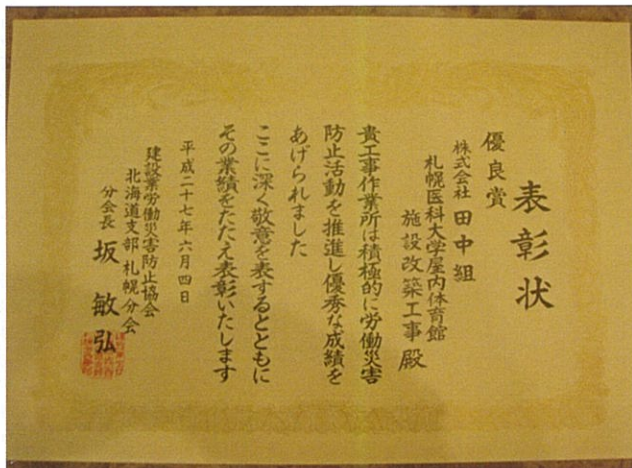 表彰状
優良賞
株式会社 田中組
札幌医科大学屋内体育館
施設改築工事 殿
貴工事作業所は積極的に労働災害
防止活動を推進し優秀な成績を
あげられました
ここに深く敬意を表するとともに
その業績をたたえ表彰いたします
平成二十七年六月四日
建設業労働災害防止協会
北海道支部 札幌分会
分会長 坂 敏弘